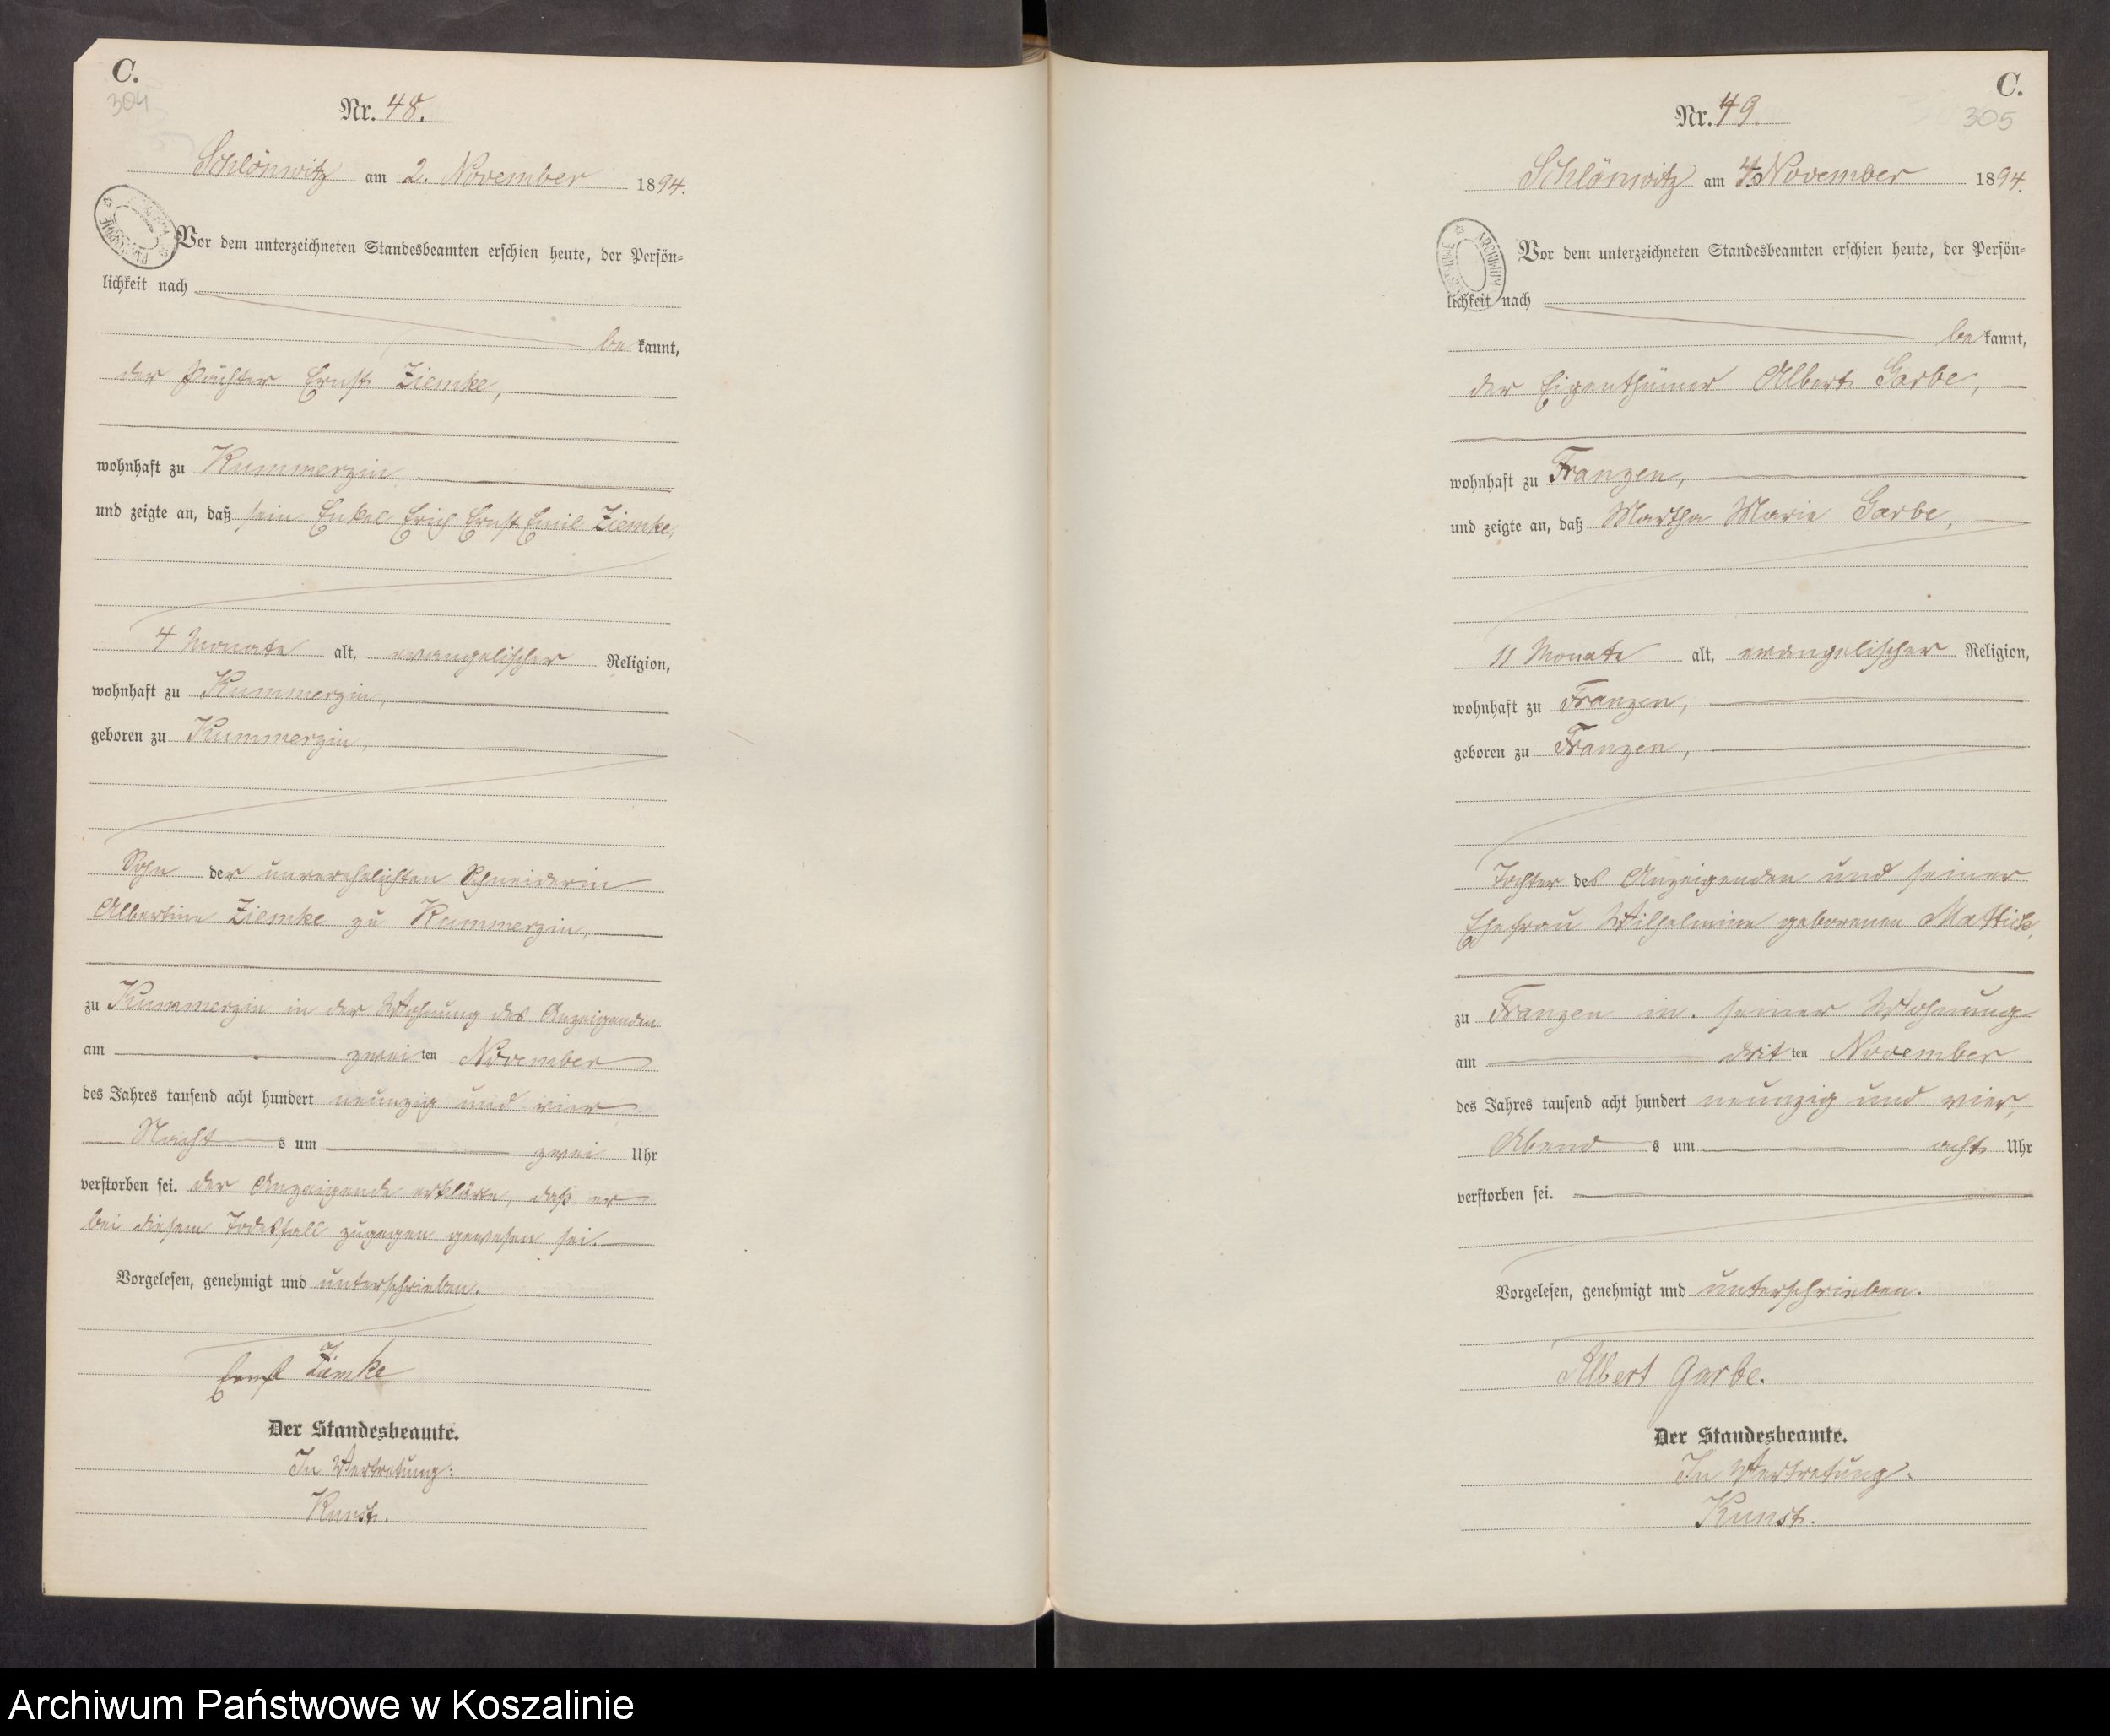 C.
304
Nr. 48.
Schlönwitz am 2. November 1894.
Vor dem unterzeichneten Standesbeamten erschien heute, der Persön-
lichkeit nach
be kannt,
der Pächter Ernst Ziemke,
wohnhaft zu Kummerzin
und zeigte an, daß sein Enkel Erich Ernst Emil Ziemke,
4 Monate alt, evangelischer Religion,
wohnhaft zu Kummerzin,
geboren zu Kummerzin,
Sohn der unverehelichten Schneiderin
Albertine Ziemke zu Kummerzin,
zu Kummerzin in der Wohnung des Anzeigenden
am zweiten November
des Jahres tausend acht hundert neunzig und vier
Nacht s um zwei Uhr
verstorben sei. der Anzeigende erklärte, daß er
bei diesem Todesfall zugegen gewesen sei.
Vorgelesen, genehmigt und unterschrieben.
Ernst Ziemke
Der Standesbeamte.
In Vertretung:
Kunst.
C.
305
Nr. 49.
Schlönwitz am 4. November 1894.
ARCHIWUM
Vor dem unterzeichneten Standesbeamten erschien heute, der Persön-
lichkeit nach
be kannt,
der Eigenthümer Albert Garbe,
wohnhaft zu Franzen,
und zeigte an, daß Martha Marie Garbe,
11 Monate alt, evangelischer Religion,
wohnhaft zu Franzen,
geboren zu Franzen,
Tochter des Anzeigenden und seiner
Ehefrau Wilhelmine geborenen Mattick,
zu Franzen in seiner Wohnung
am dritten November
des Jahres tausend acht hundert neunzig und vier,
Abend s um acht Uhr
verstorben sei.
Vorgelesen, genehmigt und unterschrieben.
Albert Garbe.
Der Standesbeamte.
In Vertretung.
Kunst.
Archiwum Państwowe w Koszalinie